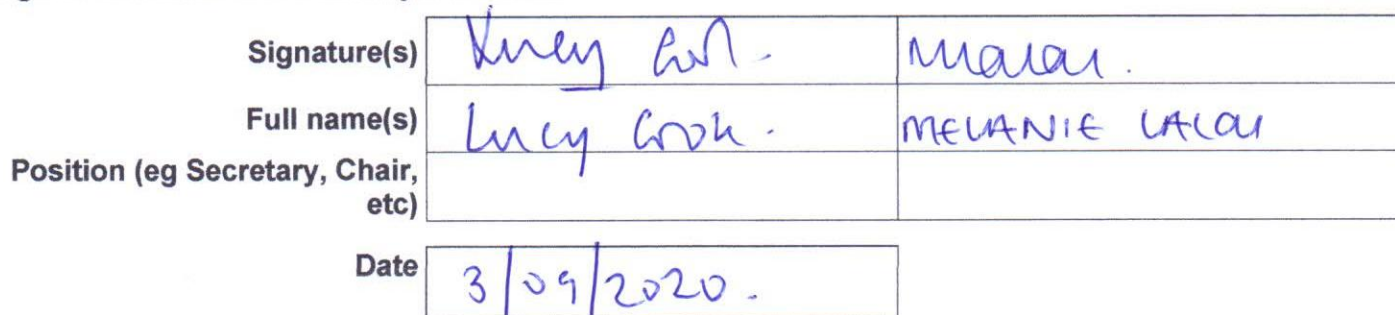 Signature(s) Lucy
Full name(s) Lucy Cook. MELANIE
Position (eg Secretary, Chair,
etc)
Date 3/09/2020.